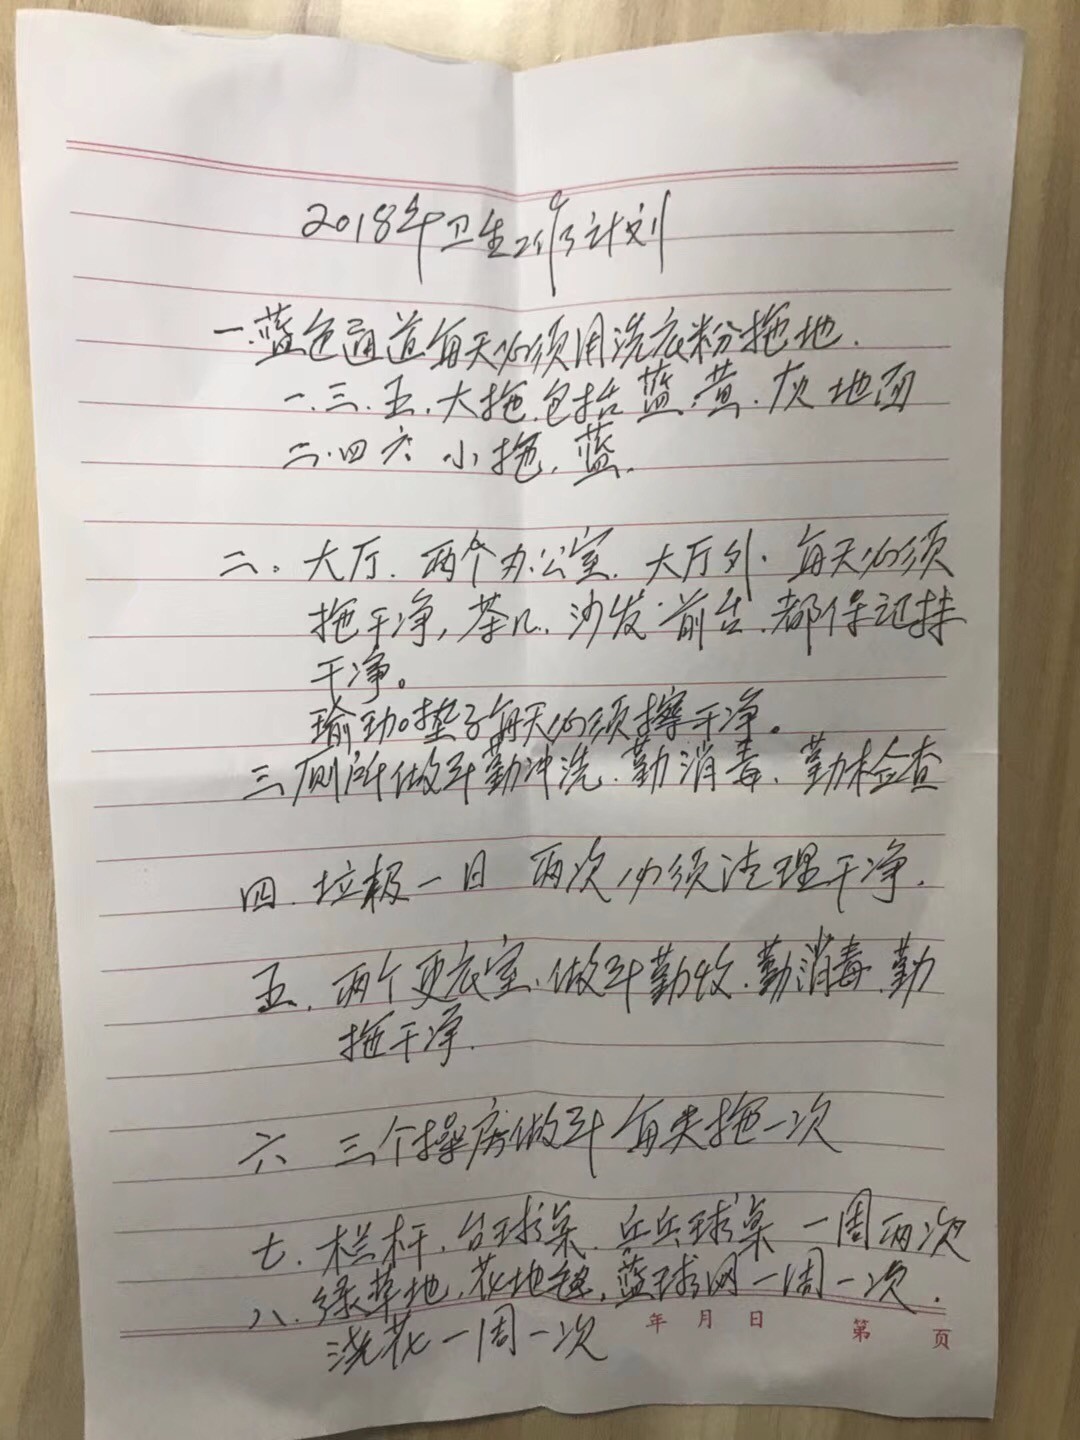 2018年卫生工作计划
一.蓝色通道每天必须用洗衣粉拖地.
一.三.五.大拖.包括蓝.黄.灰地面
二.四六 小拖.蓝.
二。大厅.两个办公室.大厅外.每天必须
拖干净,茶几.沙发.前台.都保证抹
干净。
瑜珈垫子每天必须擦干净。
三厕所做到勤冲洗.勤消毒.勤检查
四.垃极一日 两次必须清理干净.
五.两个更衣室.做到勤收.勤消毒.勤
拖干净.
六 三个操房做到每天拖一次
七.栏杆.台球桌.乒乓球桌 一周两次
八.绿草地.花地毯.蓝球网一周一次.
浇花一周一次
年 月 日 第 页